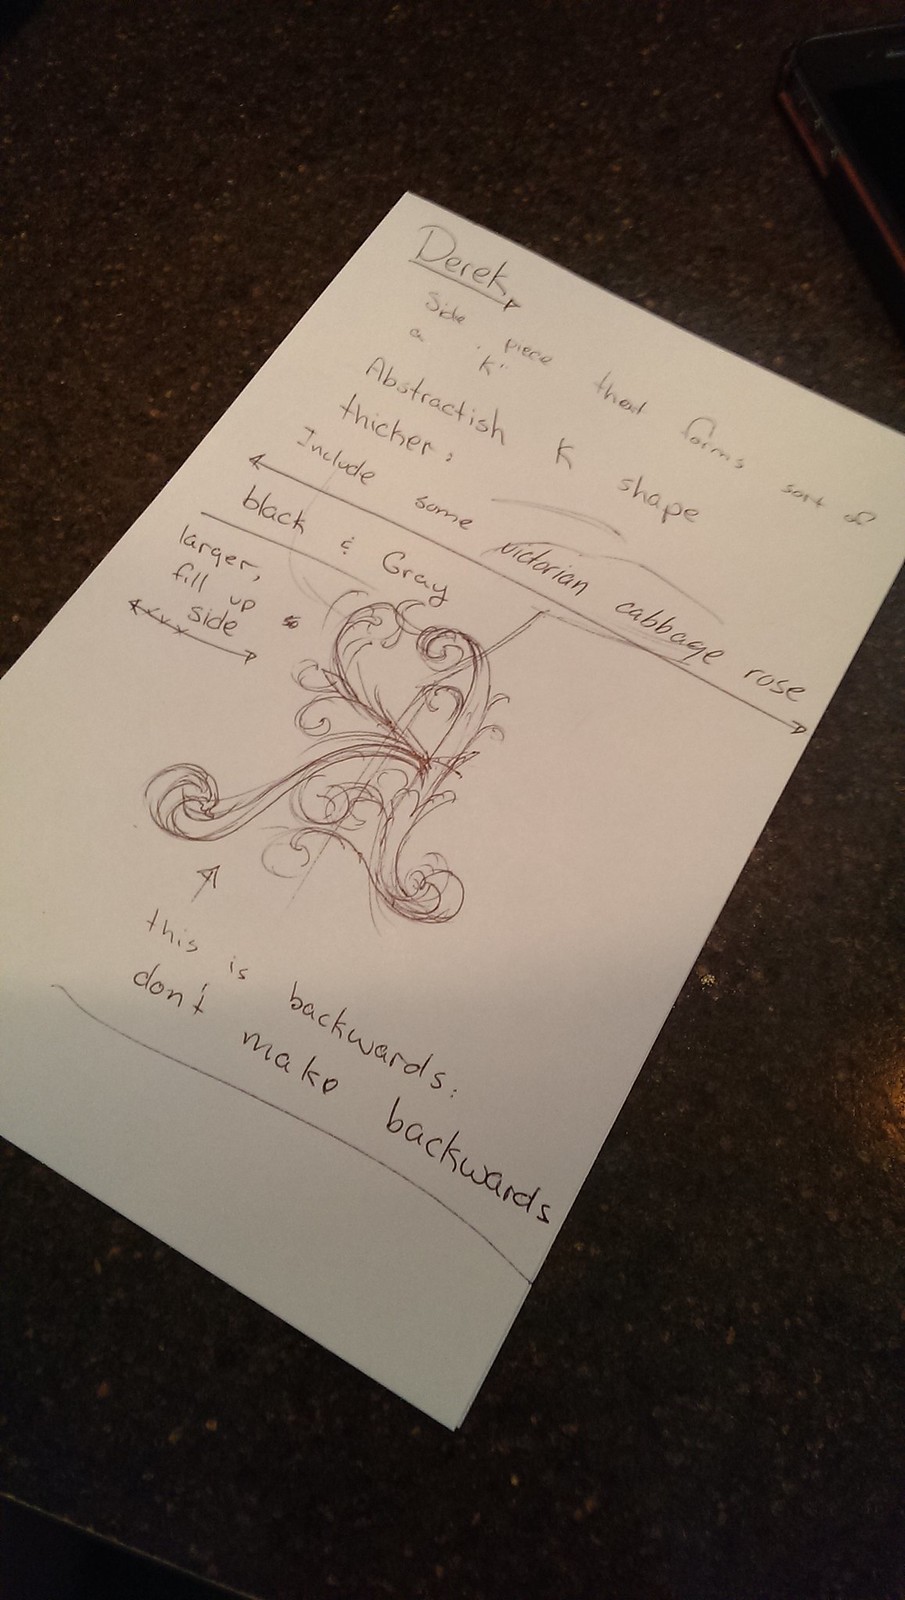 Derek
Side piece that forms sort of
a "K"
Abstractish K shape
thicker:
Include some victorian cabbage rose
black & Gray
larger,
fill up
side
this is backwards:
don't make backwards